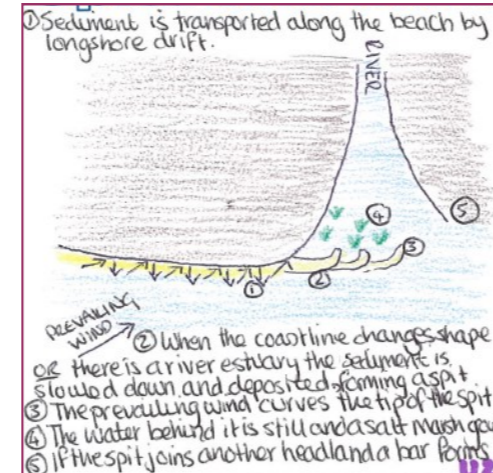 ① Sediment is transported along the beach by
longshore drift.
RIVER
④
⑤
③
②
①
PREVAILING
WIND
② When the coastline changes shape
OR there is a river estuary the sediment is
slowed down and deposited forming a spit
③ The prevailing wind curves the tip of the spit
④ The water behind it is still and a salt marsh
⑤ If the spit joins another headland a bar forms